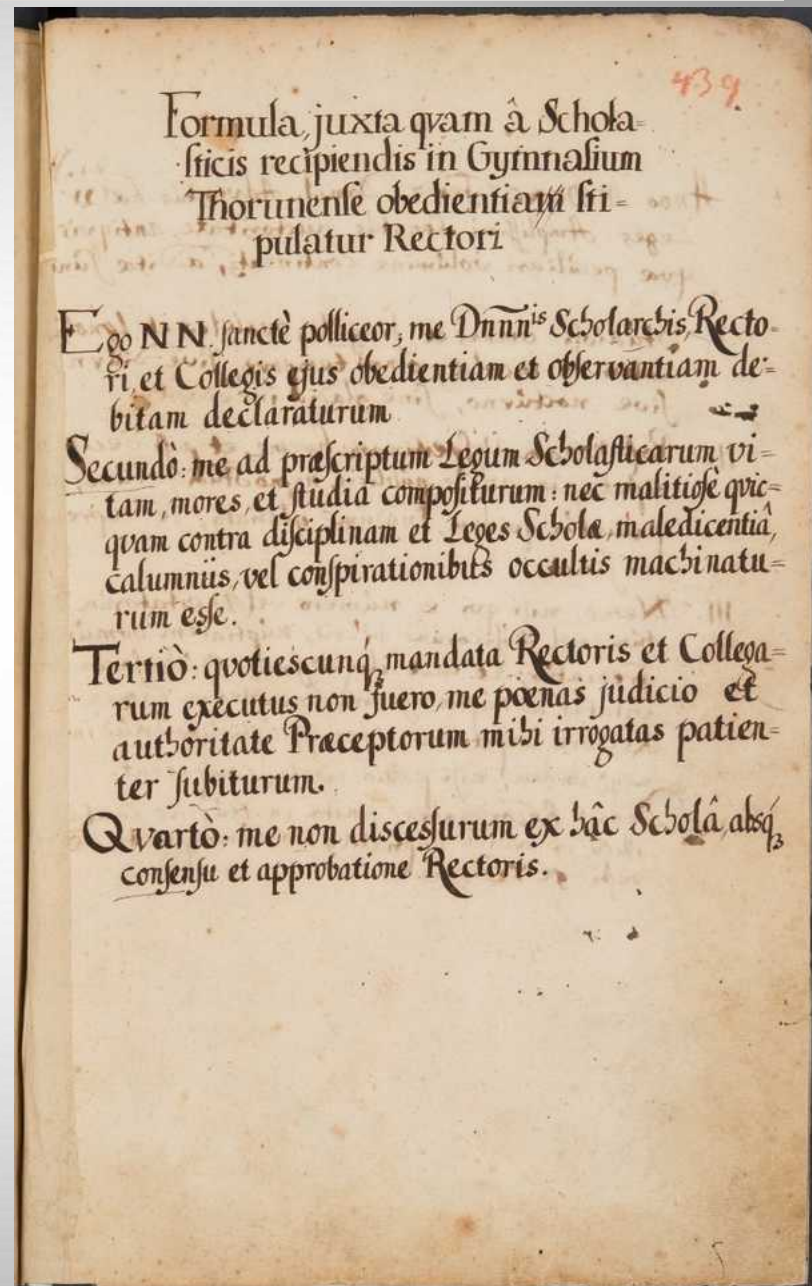 439
Formula, juxta qvam â Schola=
sticis recipiendis in Gymnasium
Thorunense obedientiam sti=
pulatur Rectori
Ego NN sanctè polliceor, me Dn̅n̅n̅is Scholarchis, Recto=
ri, et Collegis ejus obedientiam et observantiam de=
bitam declaraturum
Secundò: me ad præscriptum Legum Scholasticarum vi=
tam, mores, et studia compositurum: nec malitiosè qvic=
qvam contra disciplinam et Leges Scholæ, maledicentiâ,
calumniis, vel conspirationibus occultis machinatu=
rum esse.
Tertiò: qvotiescunq́ꝫ mandata Rectoris et Collega=
rum executus non fuero, me pœnas judicio et
authoritate Præceptorum mihi irrogatas patien=
ter subiturum.
Qvartò: me non discessurum ex hâc Scholâ, absq́ꝫ
consensu et approbatione Rectoris.